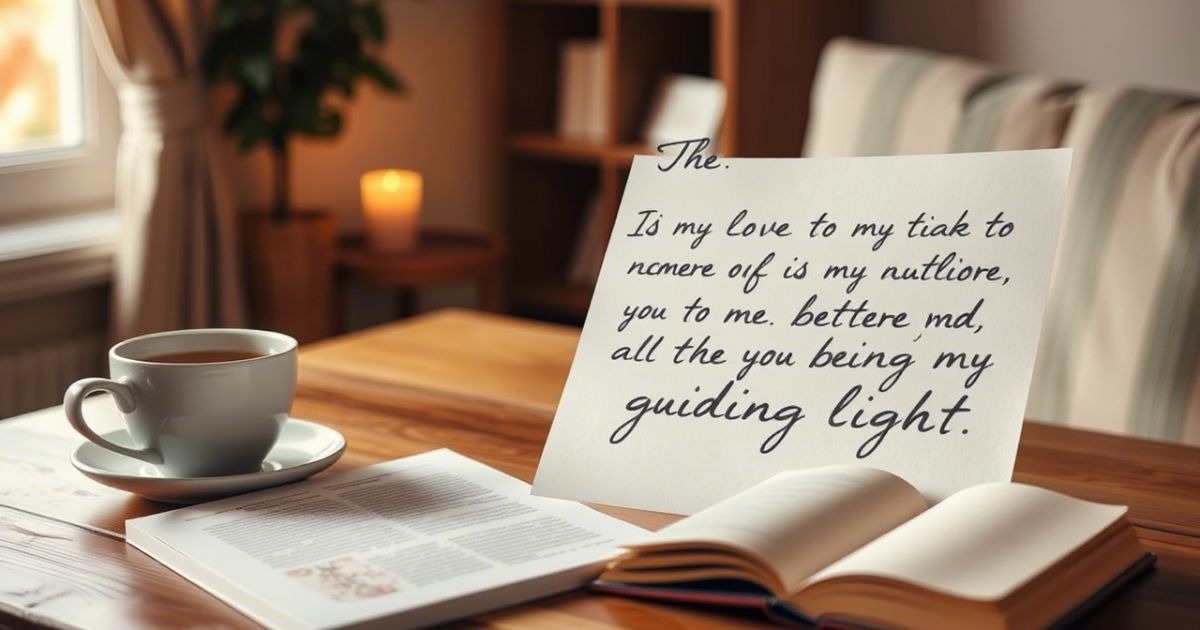 The.
Is my love to my tiak to
ncmere oıf is my nutliore,
you to me. bettere, md,
all the you being my
guiding light.